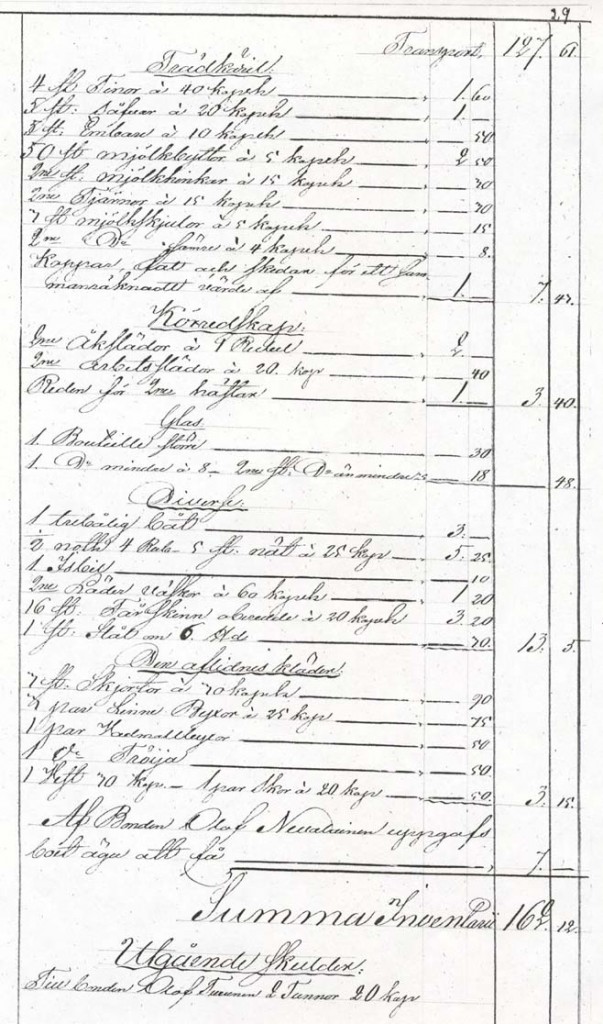 29
Transport, 127. 61.
Trädkäril.
4 st Tinor à 40 kopek 1. 60
5 st: Såfvar à 20 kopek 1. —
5 st: Embare à 10 kopek 50
50 st mjölkbyttor à 5 kopek 2 50
2ne st. mjölkhinkar à 15 kopek 30
2ne Tjärnor à 15 kopek 30
3 st mjölkskjulor à 5 kopek 15
2ne Do à 4 kopek 8.
Koppar, fat och skedar för ett sam
manräknadt värde af 1. — 7. 43.
Körredskap.
2ne Åkslädor à 1 Rubel 2. —
2ne arbetsslädor à 20 kop 40
Reden för 2ne hästar 1. — 3. 40.
Glas
1. Bouteille större 30
1. Do mindre à 8 – 2ne st: Do än mindre 18 48.
Diverse.
1 båt 3. —
2 noth 4 Rub – 5 st. nät à 25 kop 5. 25.
1 Isbil 10
2ne Läder väskor à 60 kopek 1 20
16 st: Får Skinn oberedde à 20 kopek 3. 20
1 st: Stål om 6 30. 13. 5.
Den aflidnes kläder.
3 st: Skjortor à 30 kopek 90
3 par Linne Byxor à 25 kop 75
1 par Vadmalsbyxor 50
1 do Tröija 50
1 Väst 30 kop. – 1 par Skor à 20 kop 50. 3. 15.
Af Bonden Olof uppgafs
boet äga att få 7. —
Summa Inventarii 162. 12.
Utgående skulder:
Till bonden Olof 2 Tunnor 20 kap